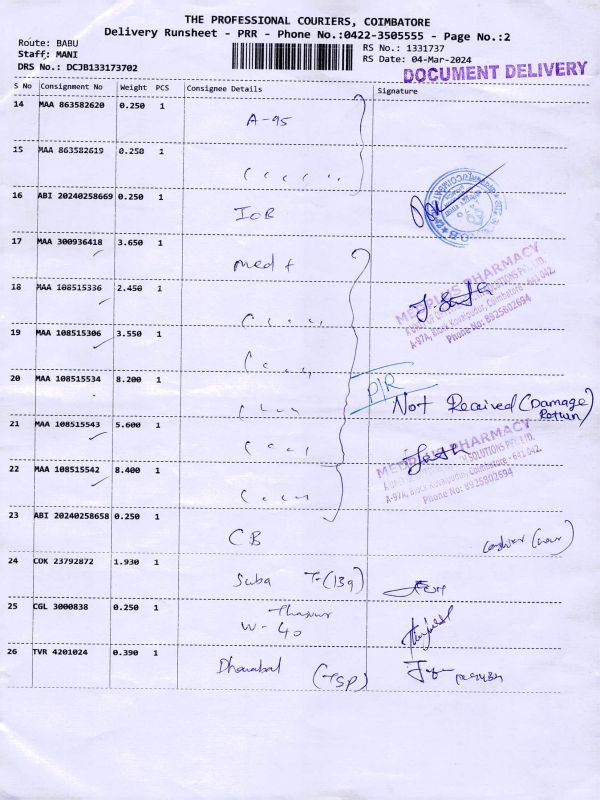 THE PROFESSIONAL COURIERS, COIMBATORE
Delivery Runsheet - PRR - Phone No.:0422-3505555 - Page No.:2
Route: BABU
Staff: MANI
DRS No.: DCJB133173702
RS No.: 1331737
RS Date: 04-Mar-2024
DOCUMENT DELIVERY
S No Consignment No Weight PCS Consignee Details Signature
14 MAA 863582620 0.250 1 A-95
15 MAA 863582619 0.250 1
16 ABI 20240258669 0.250 1 IOB
17 MAA 300936418 3.650 1 med +
18 MAA 108515336 2.450 1
MEDPLUS PHARMACY
A-97A, Block Kovaipudur, Coimbatore - 641 042.
Phone No: 8925802694
19 MAA 108515306 3.550 1
20 MAA 108515534 8.200 1 Not Received (Damage Return)
21 MAA 108515543 5.600 1
MEDPLUS PHARMACY
A-97A, Block Kovaipudur, Coimbatore - 641 042.
Phone No: 8925802694
22 MAA 108515542 8.400 1
23 ABI 20240258658 0.250 1 CB
24 COK 23792872 1.930 1 Suba T-(139)
25 CGL 3000838 0.250 1
W-40
26 TVR 4201024 0.390 1 Dhanabal (TSP)